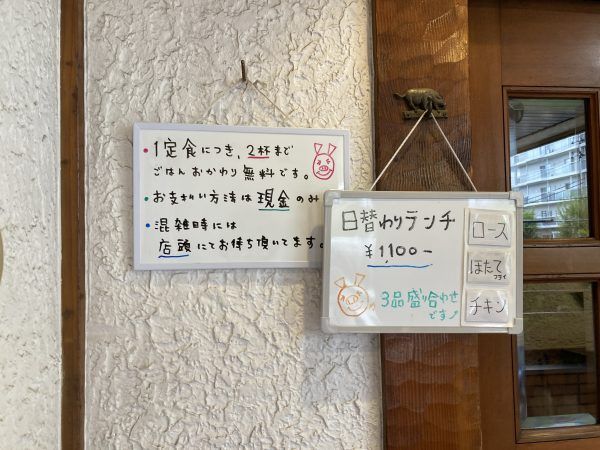 ・1定食につき、2杯まで
ごはんおかわり無料です。
・お支払い方法は現金のみ
・混雑時には
店頭にてお待ち頂いてます。
日替わりランチ
¥1100-
3品盛り合わせ
です♪
ロース
ほたて
フライ
チキン